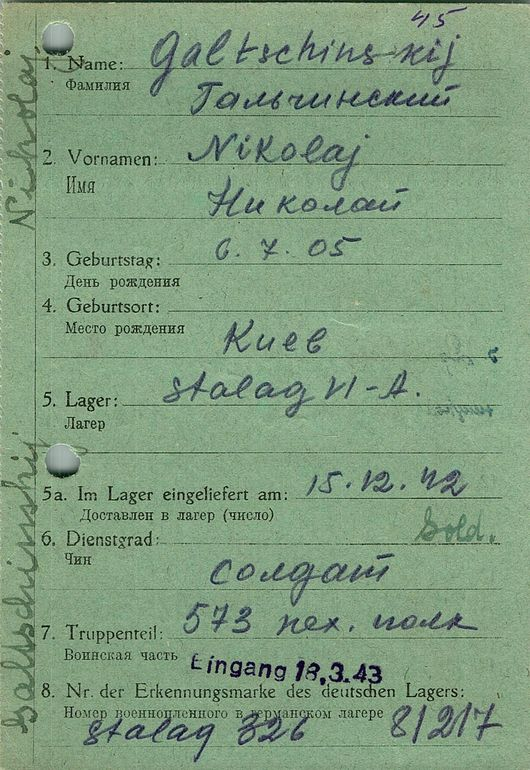 45
1. Name: Galtschinskij
Фамилия
Гальчинский
2. Vornamen: Nikolaj
Имя
Николай
3. Geburtstag: 6. 7. 05
День рождения
4. Geburtsort:
Место рождения
Киев
5. Lager: Stalag VI-A.
Лагер
5a. Im Lager eingeliefert am: 15.12.42
Доставлен в лагер (число)
6. Dienstgrad: Sold.
Чин
солдат
7. Truppenteil: 573 пех. полк
Воинская часть
Eingang 18.3.43
8. Nr. der Erkennungsmarke des deutschen Lagers:
Номер военнопленного в германском лагере 8/217
Stalag 326
Galtschinskij Nikolaj